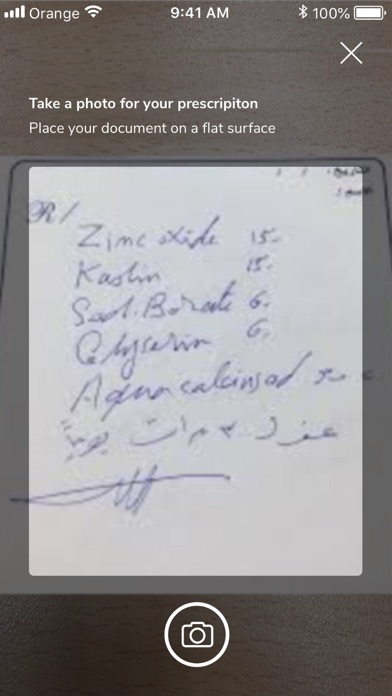 Orange 9:41 AM 100%
Take a photo for your prescripiton
Place your document on a flat surface
R/
Zinc oxide 15.
Kaolin 15.
Sod. Borate 6.
Glyserin 6.
Aqua ad
مرات يومياً